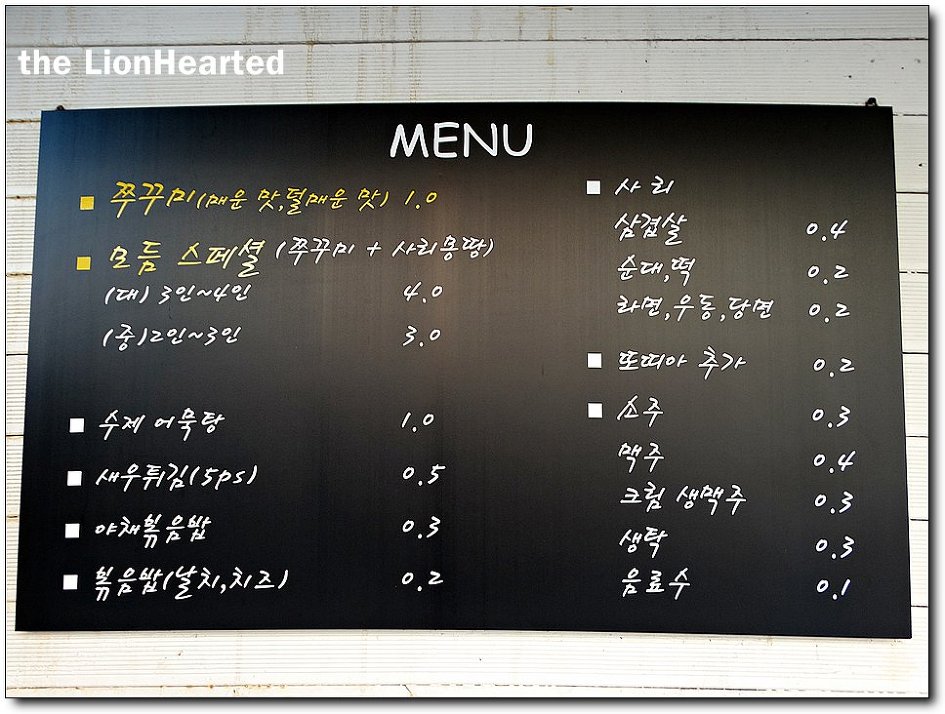 the LionHearted
MENU
쭈꾸미(매운 맛,덜매운 맛) 1.0
모듬 스페셜 (쭈꾸미 + 사리몽땅)
(대) 3인~4인 4.0
(중)2인~3인 3.0
수제 어묵탕 1.0
새우튀김(5ps) 0.5
야채볶음밥 0.3
볶음밥(날치,치즈) 0.2
사리
삼겹살 0.4
순대,떡 0.2
라면,우동,당면 0.2
또띠아 추가 0.2
소주 0.3
맥주 0.4
크림 생맥주 0.3
생탁 0.3
음료수 0.1